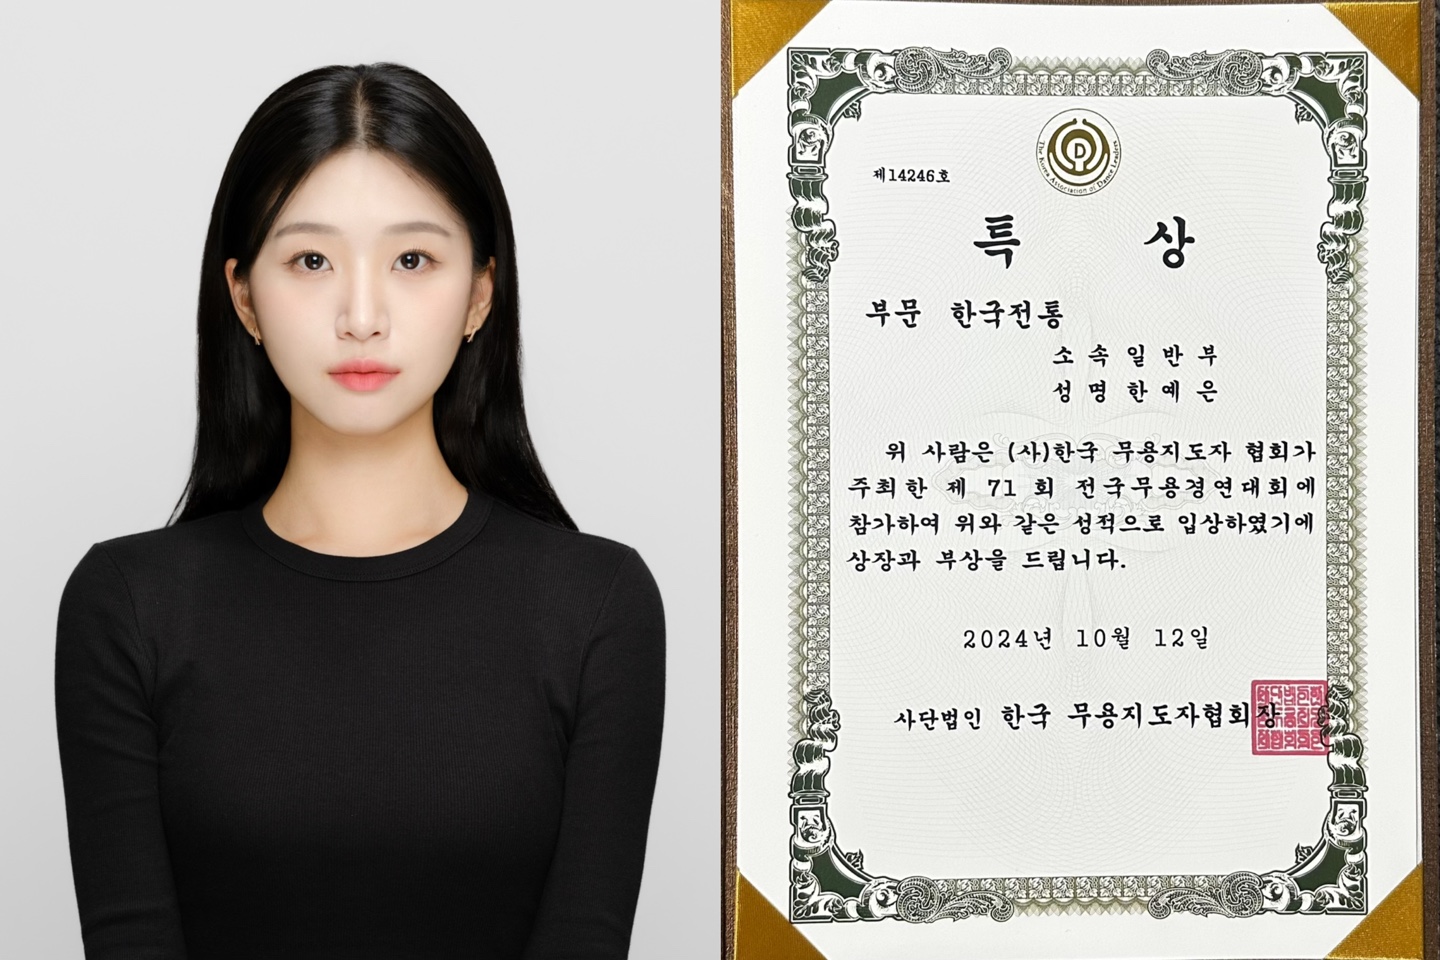 The Korea Association of Dance Leaders
D
제14246호
특 상
부문 한국전통
소속일반부
성명한예은
위 사람은 (사)한국 무용지도자 협회가
주최한 제 71 회 전국무용경연대회에
참가하여 위와 같은 성적으로 입상하였기에
상장과 부상을 드립니다.
2024년 10월 12일
사단법인 한국 무용지도자협회장